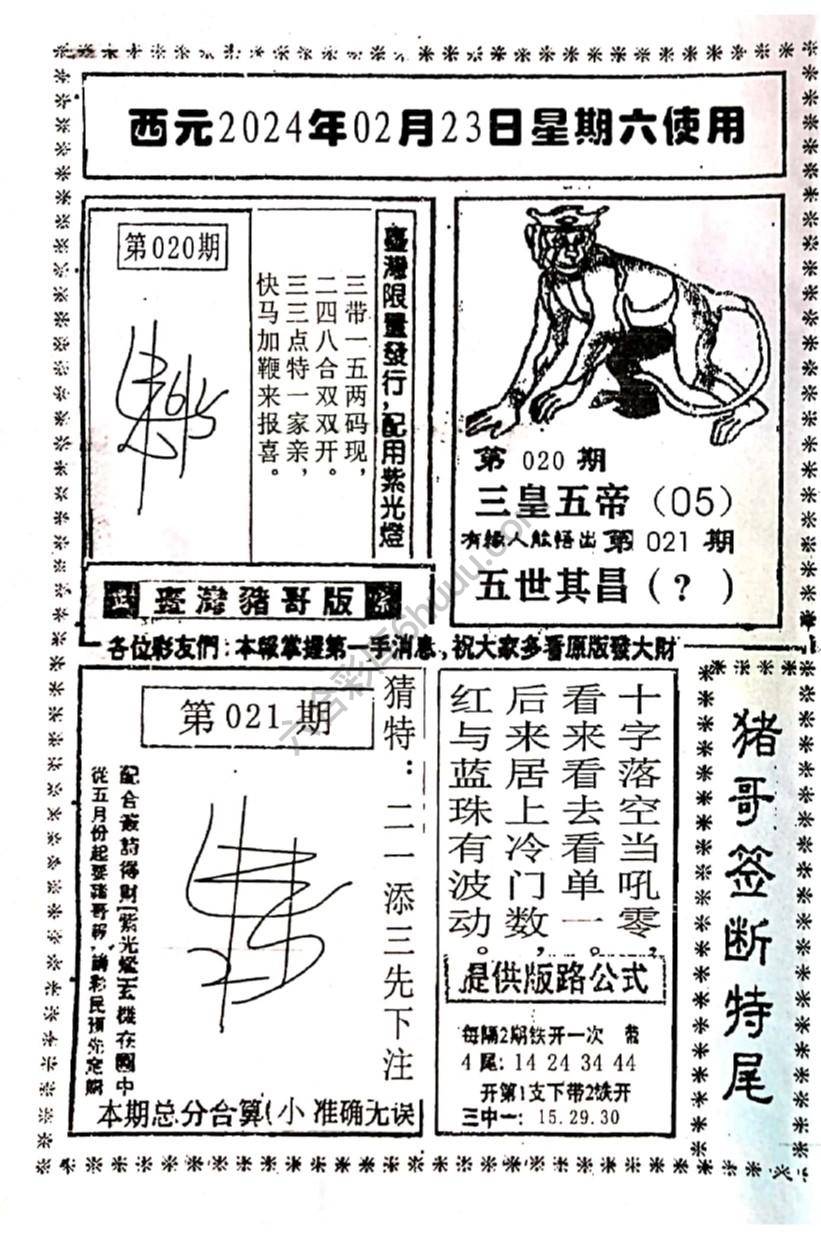 西元2024年02月23日星期六使用
第020期
臺灣限量發行,配用紫光燈
三带一五两码现,
二四八合双双开。
三三点特一家亲,
快马加鞭来报喜。
臺灣豬哥版
第 020 期
三皇五帝(05)
有缘人能悟出第 021 期
五世其昌(?)
各位彩友們:本報掌握第一手消息,祝大家多看原版發大財
第 021 期
猜特:二一添三先下注
配合簽詩得財[紫光燈]玄機在圈中
從五月份起要豬哥報,請彩民預先定購
本期总分合算(小 准确无误
十字落空当吼零,
看来看去看单一。
后来居上冷门数,
红与蓝珠有波动。
提供版路公式
每隔2期铁开一次 带
4尾: 14 24 34 44
开第1支下带2铁开
三中一: 15.29.30
猪哥签断特尾
六合彩库6huuu.com